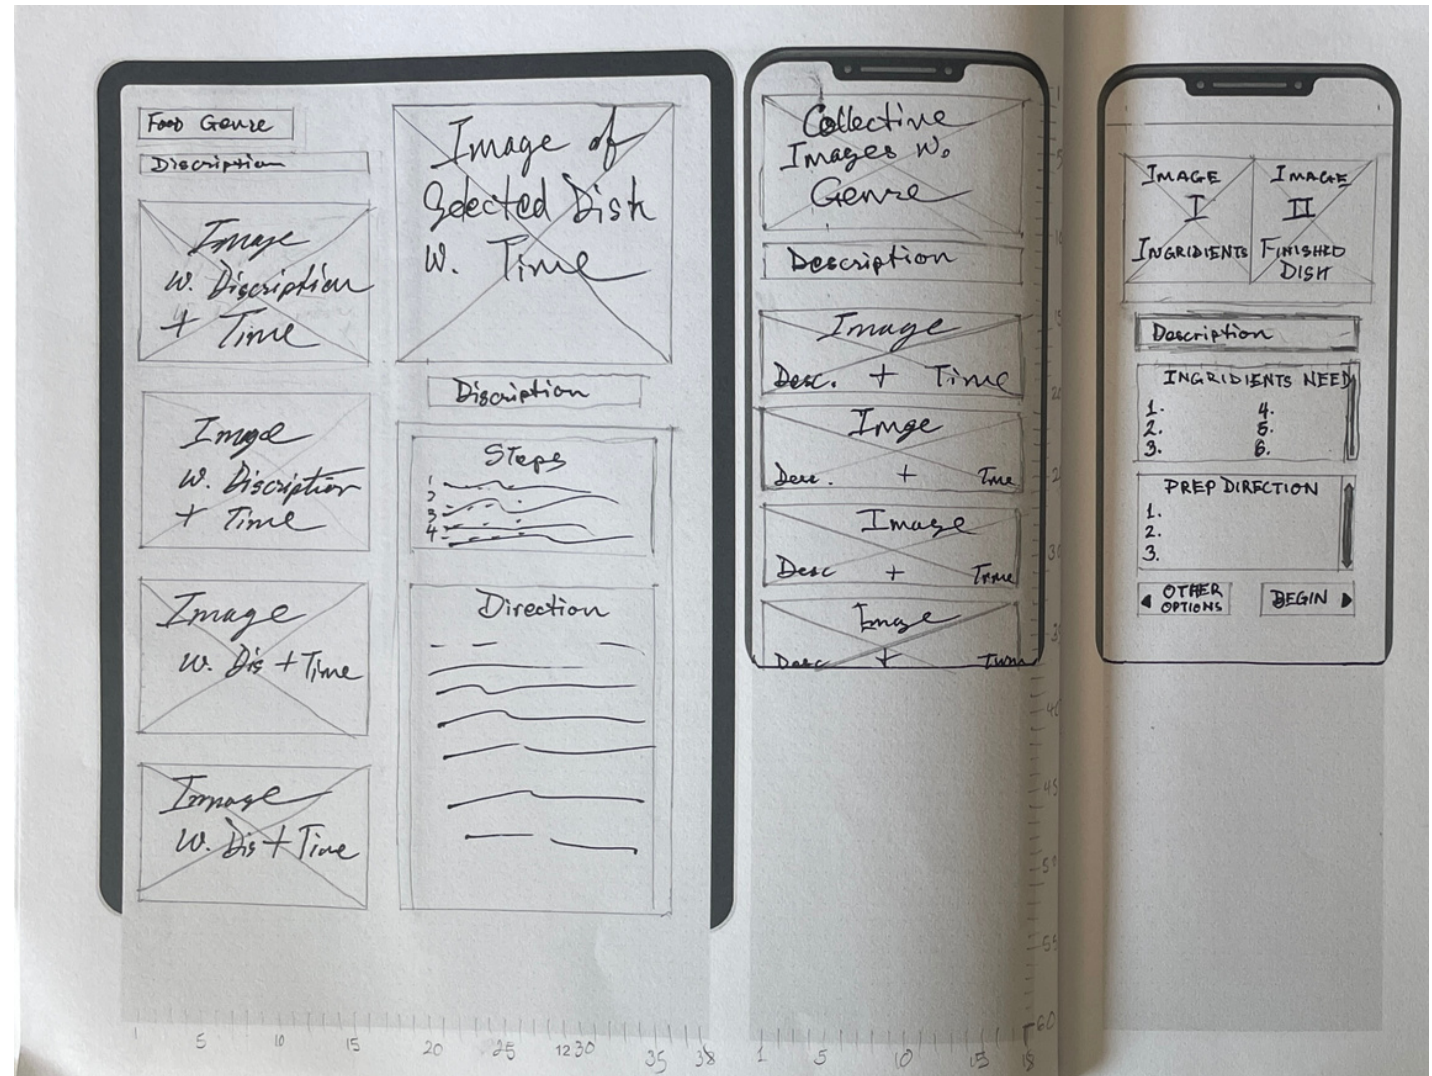 Food Genre
Discription
Image
W. Discription
+ Time
Image
W. Discription
+ Time
Image
W. Dis + Time
Image
W. Dis + Time
Image of
Selected Dish
W. Time
Discription
Steps
1
2
3
4
Direction
Collective
Images W.
Genre
Description
Image
Desc. + Time
Imge
Desc. + Tme
Image
Desc + Time
Image
Desc +
IMAGE
I
INGRIDIENTS
IMAGE
II
FINISHED
DISH
Description
INGRIDIENTS NEED
1. 4.
2. 5.
3. 6.
PREP DIRECTION
1.
2.
3.
OTHER
OPTIONS
BEGIN
1 5 10 15 20 25 1230 35 38
1 5 10 15 18
15
20
30
40
45
55
60